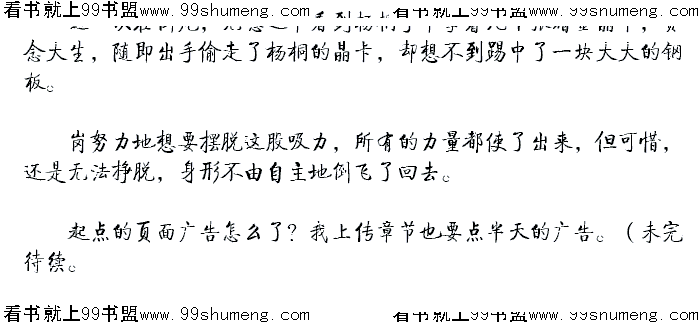 看书就上99书盟www.99shumeng.com 看书就上99书盟www.99shumeng.com
念大生，随即出手偷走了杨桐的晶卡，却想不到踢中了一块大大的钢
板。
岗努力地想要摆脱这股吸力，所有的力量都使了出来，但可惜，
还是无法挣脱，身形不由自主地倒飞了回去。
起点的页面广告怎么了？我上传章节也要点半天的广告。（未完
待续。
看书就上99书盟www.99shumeng.com 看书就上99书盟www.99shumeng.com